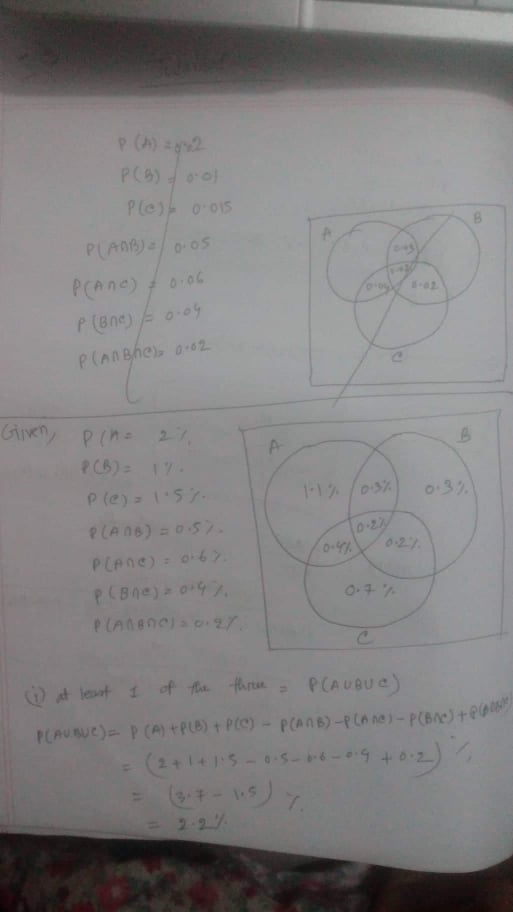 P(A) = 0.2
P(B) = 0.01
P(C) = 0.015
P(A∩B) = 0.05
P(A∩C) = 0.06
P(B∩C) = 0.04
P(A∩B∩C) = 0.02
A
B
0.03
0.02
0.04
0.02
C
Given, P(A = 2%.
P(B) = 1%.
P(C) = 1.5%.
P(A∩B) = 0.5%.
P(A∩C) = 0.6%.
P(B∩C) = 0.4%.
P(A∩B∩C) = 0.2%.
A
B
1.1%
0.3%
0.3%.
0.2%
0.4%
0.2%.
0.7%
C
(i) at least 1 of the three = P(A∪B∪C)
P(A∪B∪C) = P(A) + P(B) + P(C) - P(A∩B) - P(A∩C) - P(B∩C) + P(A∩B∩C)
= (2 + 1 + 1.5 - 0.5 - 0.6 - 0.4 + 0.2) %
= (3.7 - 1.5) %
= 2.2%.